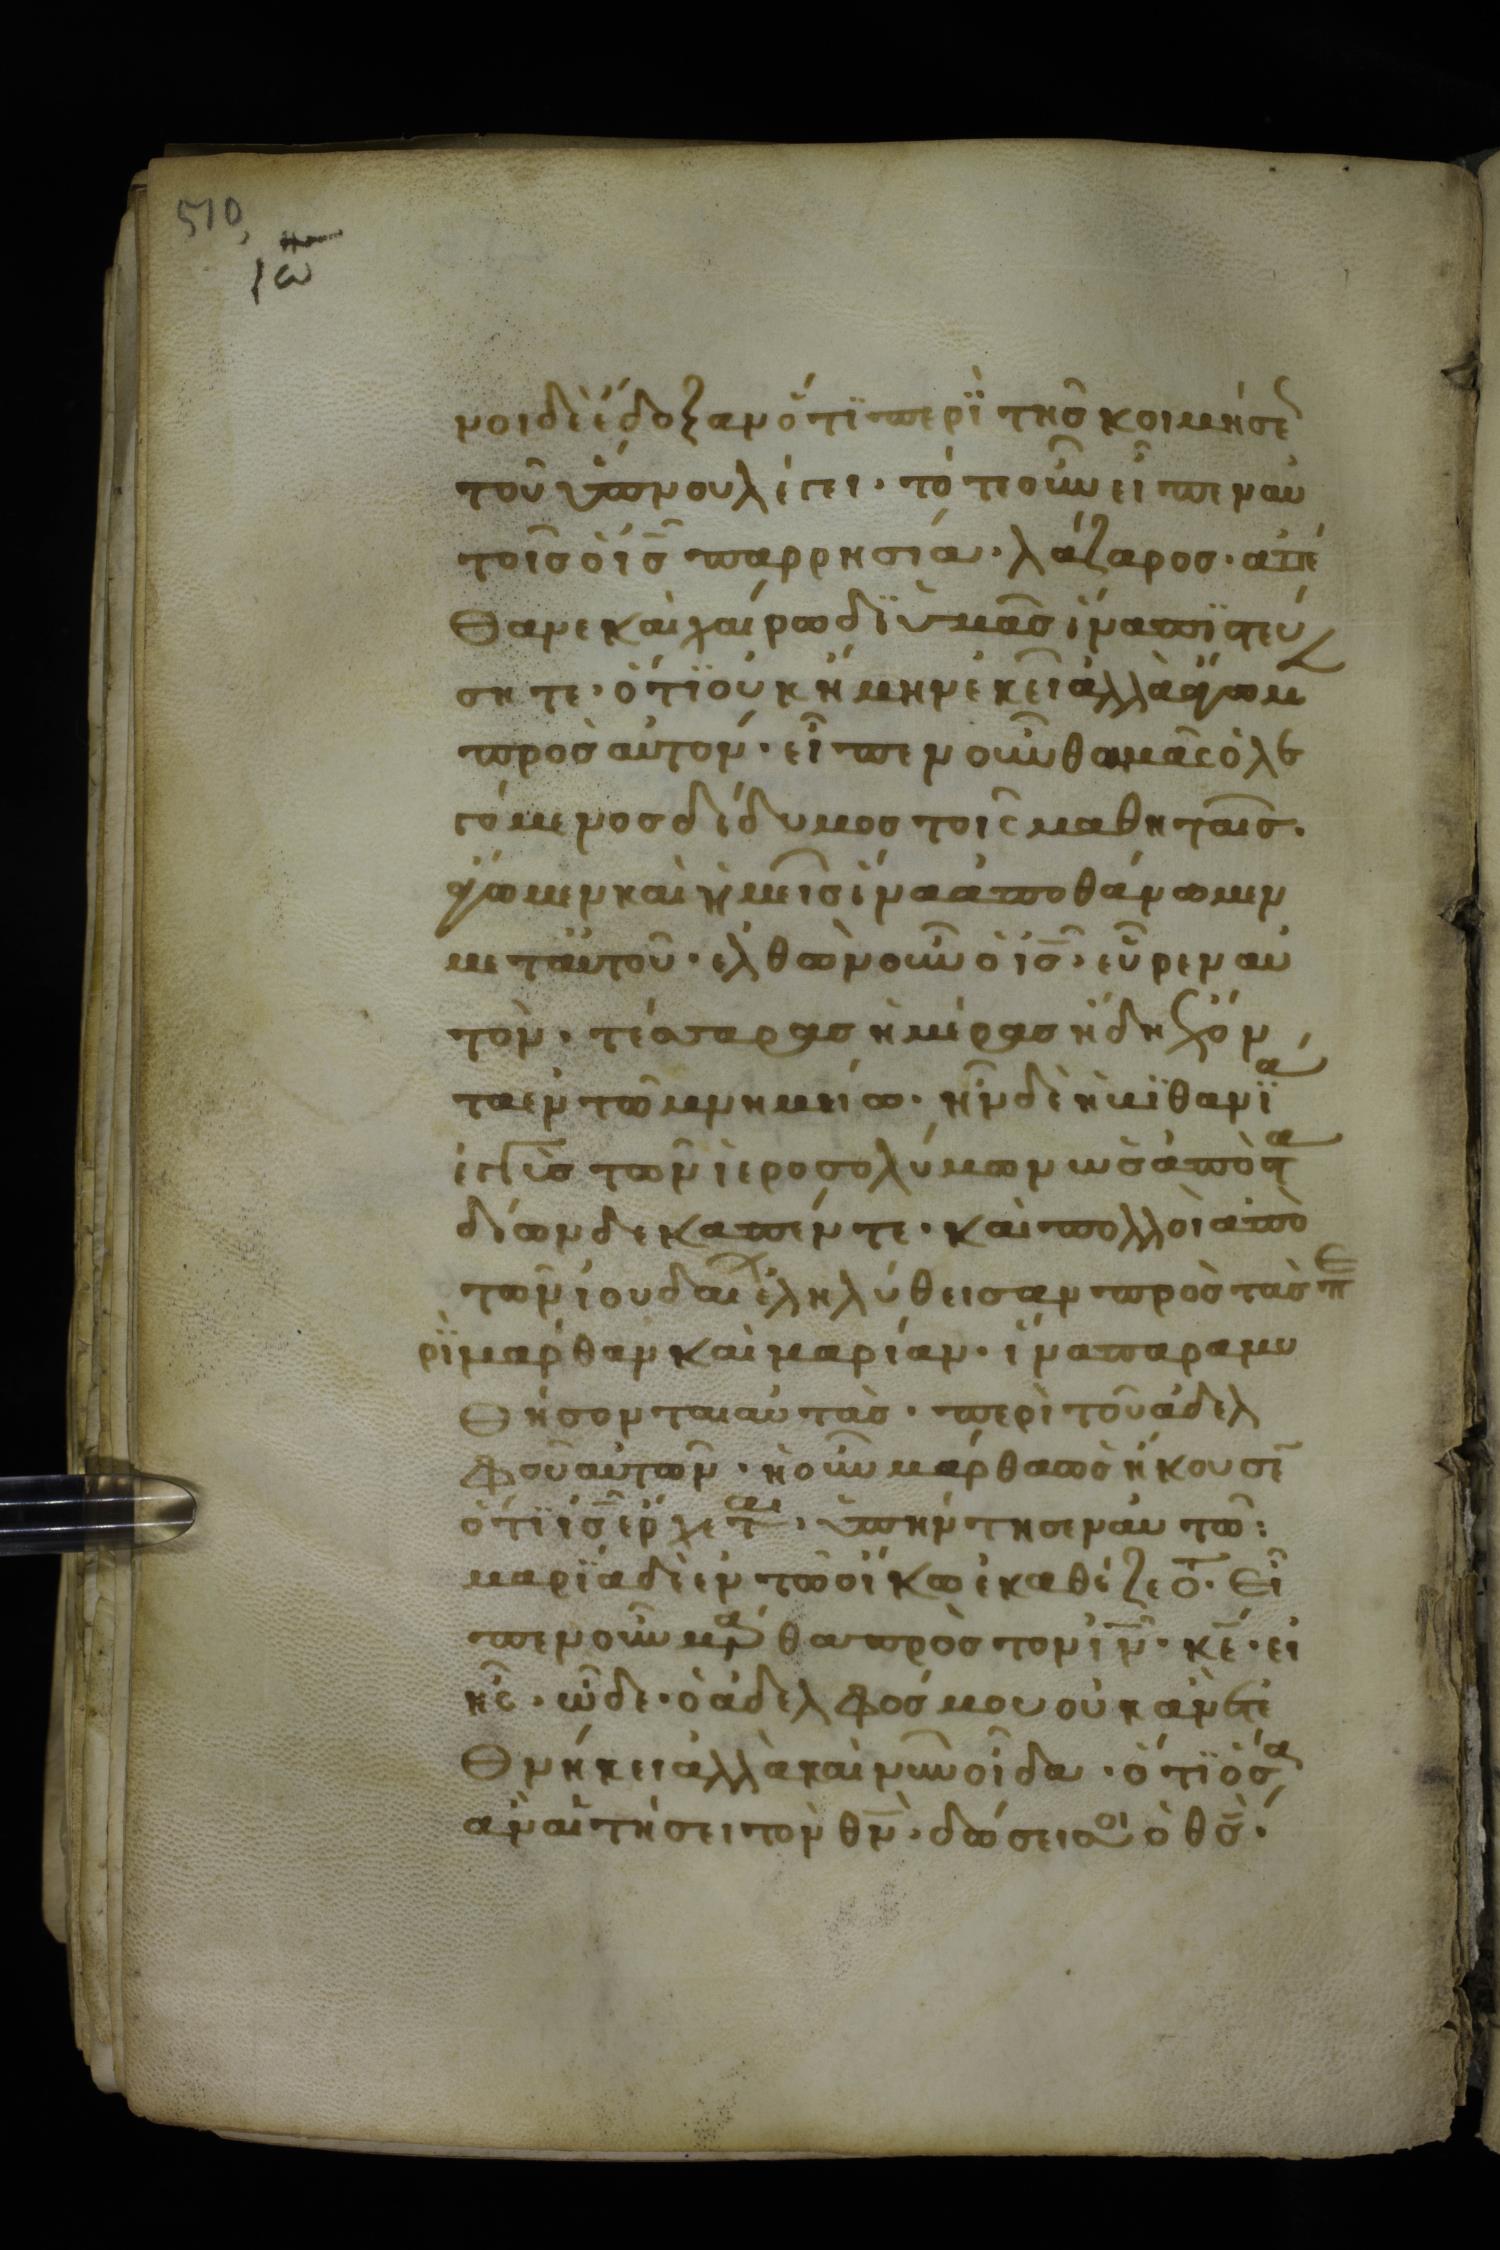 510,
ιω
νοι δὲ ἔδοξαν ὅτϊ περῒ τῆσ κοιμήσε
τοῦ ὕπνου λέγει · τότε οὖν εἶπεν αὐ
τοῖσ ὁ ισ̅ παρρησία · λάζαρος · ἀπέ
θανε καὶ χαίρω δϊ ὑμᾶσ ἵνα πϊστεύ
σητε · ὅτϊ οὐκ ἤμην ἐκεῖ ἀλλὰ ἄγωμ
πρὸσ αὐτόν · εἶπεν οὖν θωμᾶς ὁ λε
γόμενοσ δίδυμοσ τοῖς μαθηταῖσ ·
ἄγωμεν καὶ ἡμεῖσ ἵνα ἀποθάνωμεν
μετ αὐτοῦ · ἐλθὼν οὖν ὁ ισ̅ · εὗρεν αὐ
τὸν · τέσσαρασ ἡμέρασ ἤδη ἔχον
τα ἐν τῶ μνημείω · ἦν δὲ ἡ βϊθανΐα
ἐγγὺσ τῶν ἱεροσολύμων ὡσ ἀπὸ στα
δίων δεκαπέντε · καὶ πολλοὶ ἀπὸ
τῶν ἰουδαι ἐληλύθεισαν πρὸσ τὰσ πε
ρῒ μάρθαν καὶ μαρίαν · ἵνα παραμυ
θήσονται αὐτὰσ · περὶ τοῦ ἀδελ
φοῦ αὐτῶν · ἡ οὖν μάρθα ὡσ ἤκουσε
ὅτϊ ισ̅ ἔρχεται · ὑπήντησεν αὐτῶ :
μαρΐα δὲ ἐν τῶ οἴκω ἐκαθέζετο · εἶ
πεν οὖν μάρθα πρὸσ τὸν ιν̅ · κε̅ · εἰ
ἦς · ὧδε · ὁ ἀδελφόσ μου οὐκ ἂν ἐτε
θνήκει ἀλλὰ καὶ νῦν οἶδα · ὅτϊ ὅσα
ἂν αἰτήσει τὸν θν̅ · δώσει σοι ὁ θσ̅ ·